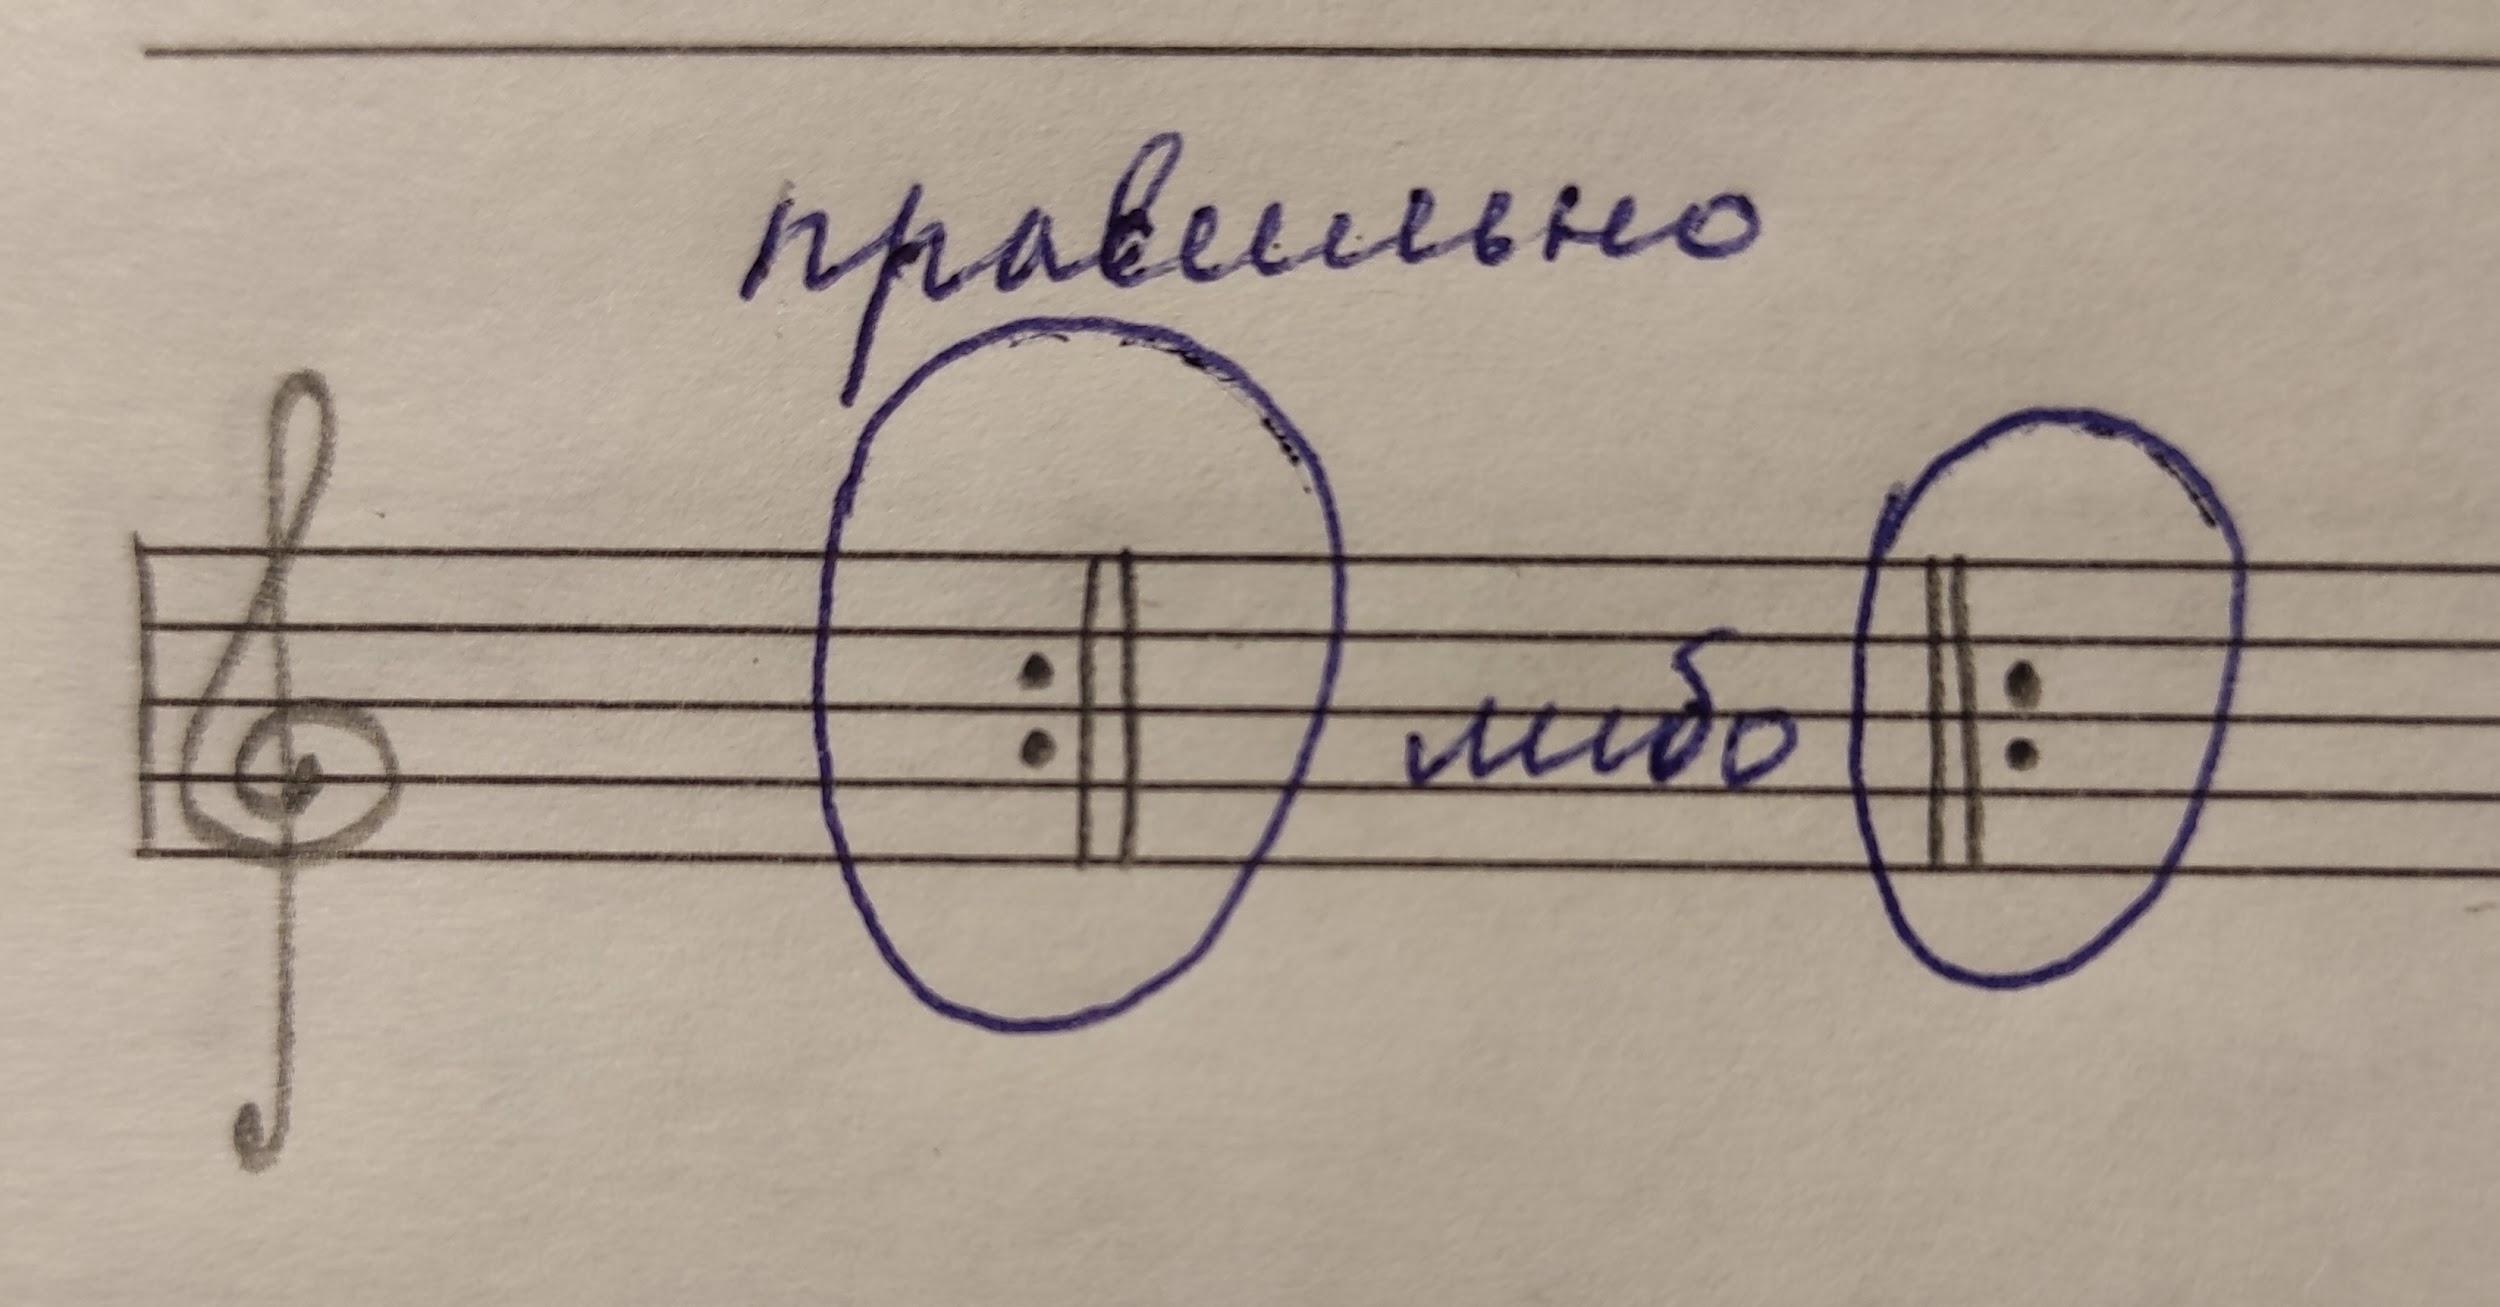 правильно
либо